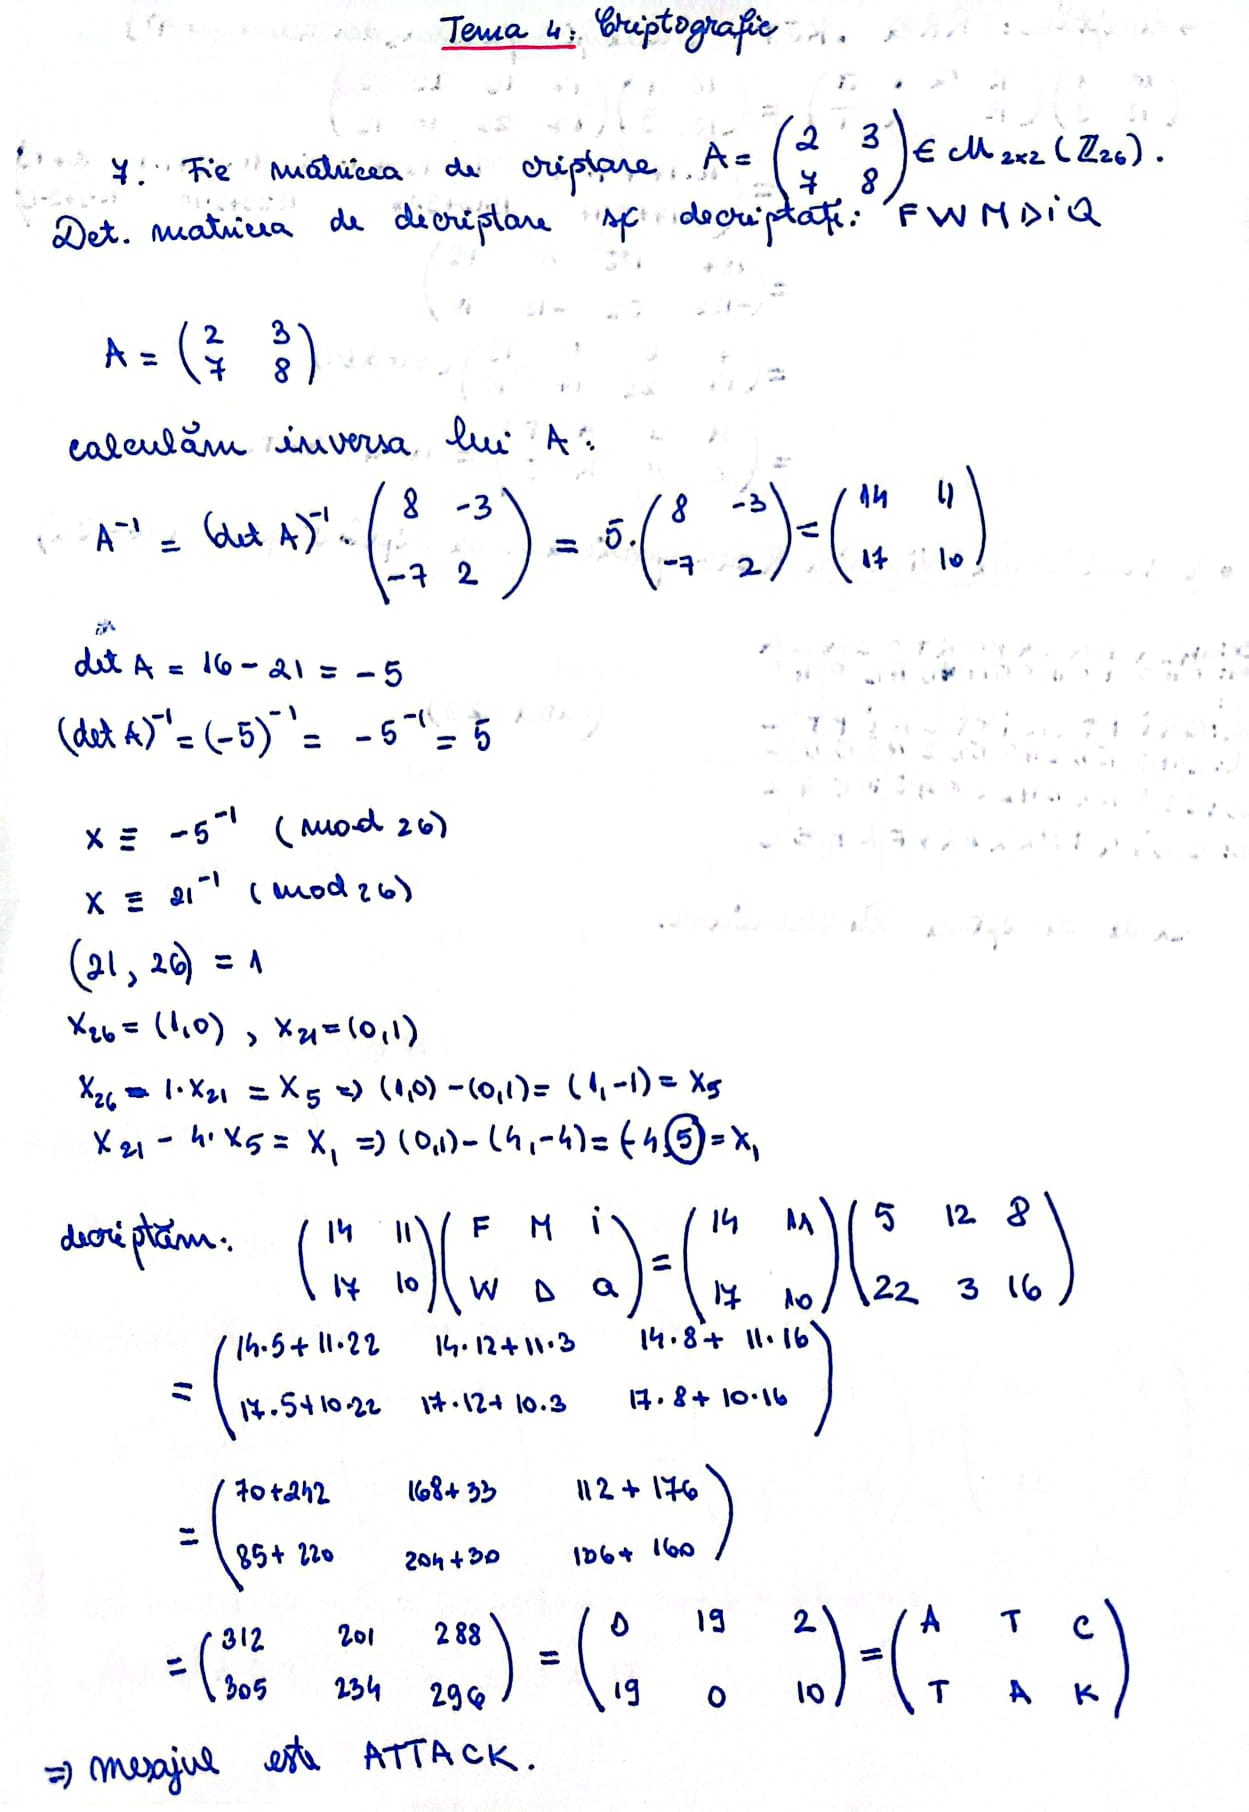 Tema 4: Criptografie
7. Fie matricea de criptare A = ( 2 3 ; 7 8 ) ∈ M 2x2 (Z26).
Det. matricea de decriptare și decriptați: FWMDIQ
A = ( 2 3 ; 7 8 )
calculăm inversa lui A:
A⁻¹ = (det A)⁻¹ · ( 8 -3 ; -7 2 ) = 5 · ( 8 -3 ; -7 2 ) = ( 14 11 ; 17 10 )
det A = 16 - 21 = -5
(det A)⁻¹ = (-5)⁻¹ = -5⁻¹ = 5
x ≡ -5⁻¹ (mod 26)
x ≡ 21⁻¹ (mod 26)
(21, 26) = 1
X26 = (1,0) , X21 = (0,1)
X26 - 1·X21 = X5 => (1,0) - (0,1) = (1,-1) = X5
X21 - 4·X5 = X1 => (0,1) - (4,-4) = (-4,5) = X1
decriptăm: ( 14 11 ; 17 10 ) ( F M i ; W D Q ) = ( 14 11 ; 17 10 ) ( 5 12 8 ; 22 3 16 )
= ( 14·5+11·22 14·12+11·3 14·8+11·16 ; 17·5+10·22 17·12+10·3 17·8+10·16 )
= ( 70+242 168+33 112+176 ; 85+220 204+30 136+160 )
= ( 312 201 288 ; 305 234 296 ) = ( 0 19 2 ; 19 0 10 ) = ( A T C ; T A K )
=> mesajul este ATTACK.